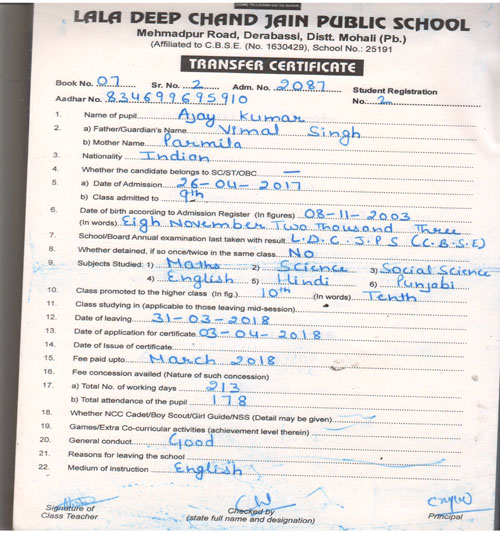 LALA DEEP CHAND JAIN PUBLIC SCHOOL
Mehmadpur Road, Derabassi, Distt. Mohali (Pb.)
(Affiliated to C.B.S.E. (No. 1630429), School No.: 25191
TRANSFER CERTIFICATE
Book No. 07 Sr. No. 2 Adm. No. 2087 Student Registration
Aadhar No. 834699695910 No. 2
1. Name of pupil Ajay kumar
2. a) Father/Guardian's Name Vimal Singh
b) Mother Name Parmila
3. Nationality Indian
4. Whether the candidate belongs to SC/ST/OBC —
5. a) Date of Admission 26-04-2017
b) Class admitted to 9th
6. Date of birth according to Admission Register (In figures) 08-11-2003
(In words) Eigh November Two Thousand Three
7. School/Board Annual examination last taken with result L.D.C.J.P.S (C.B.S.E)
8. Whether detained, if so once/twice in the same class No
9. Subjects Studied: 1) Maths 2) Science 3) Social Science
4) English 5) Hindi 6) Punjabi
10. Class promoted to the higher class (In fig.) 10th (In words) Tenth
11. Class studying in (applicable to those leaving mid-session)
12. Date of leaving 31-03-2018
13. Date of application for certificate 03-04-2018
14. Date of Issue of certificate
15. Fee paid upto March 2018
16. Fee concession availed (Nature of such concession)
17. a) Total No. of working days 213
b) Total attendance of the pupil 178
18. Whether NCC Cadet/Boy Scout/Girl Guide/NSS (Detail may be given)
19. Games/Extra Co-curricular activities (achievement level therein)
20. General conduct Good
21. Reasons for leaving the school
22. Medium of instruction English
Signature of Class Teacher
Checked by
(state full name and designation)
Principal